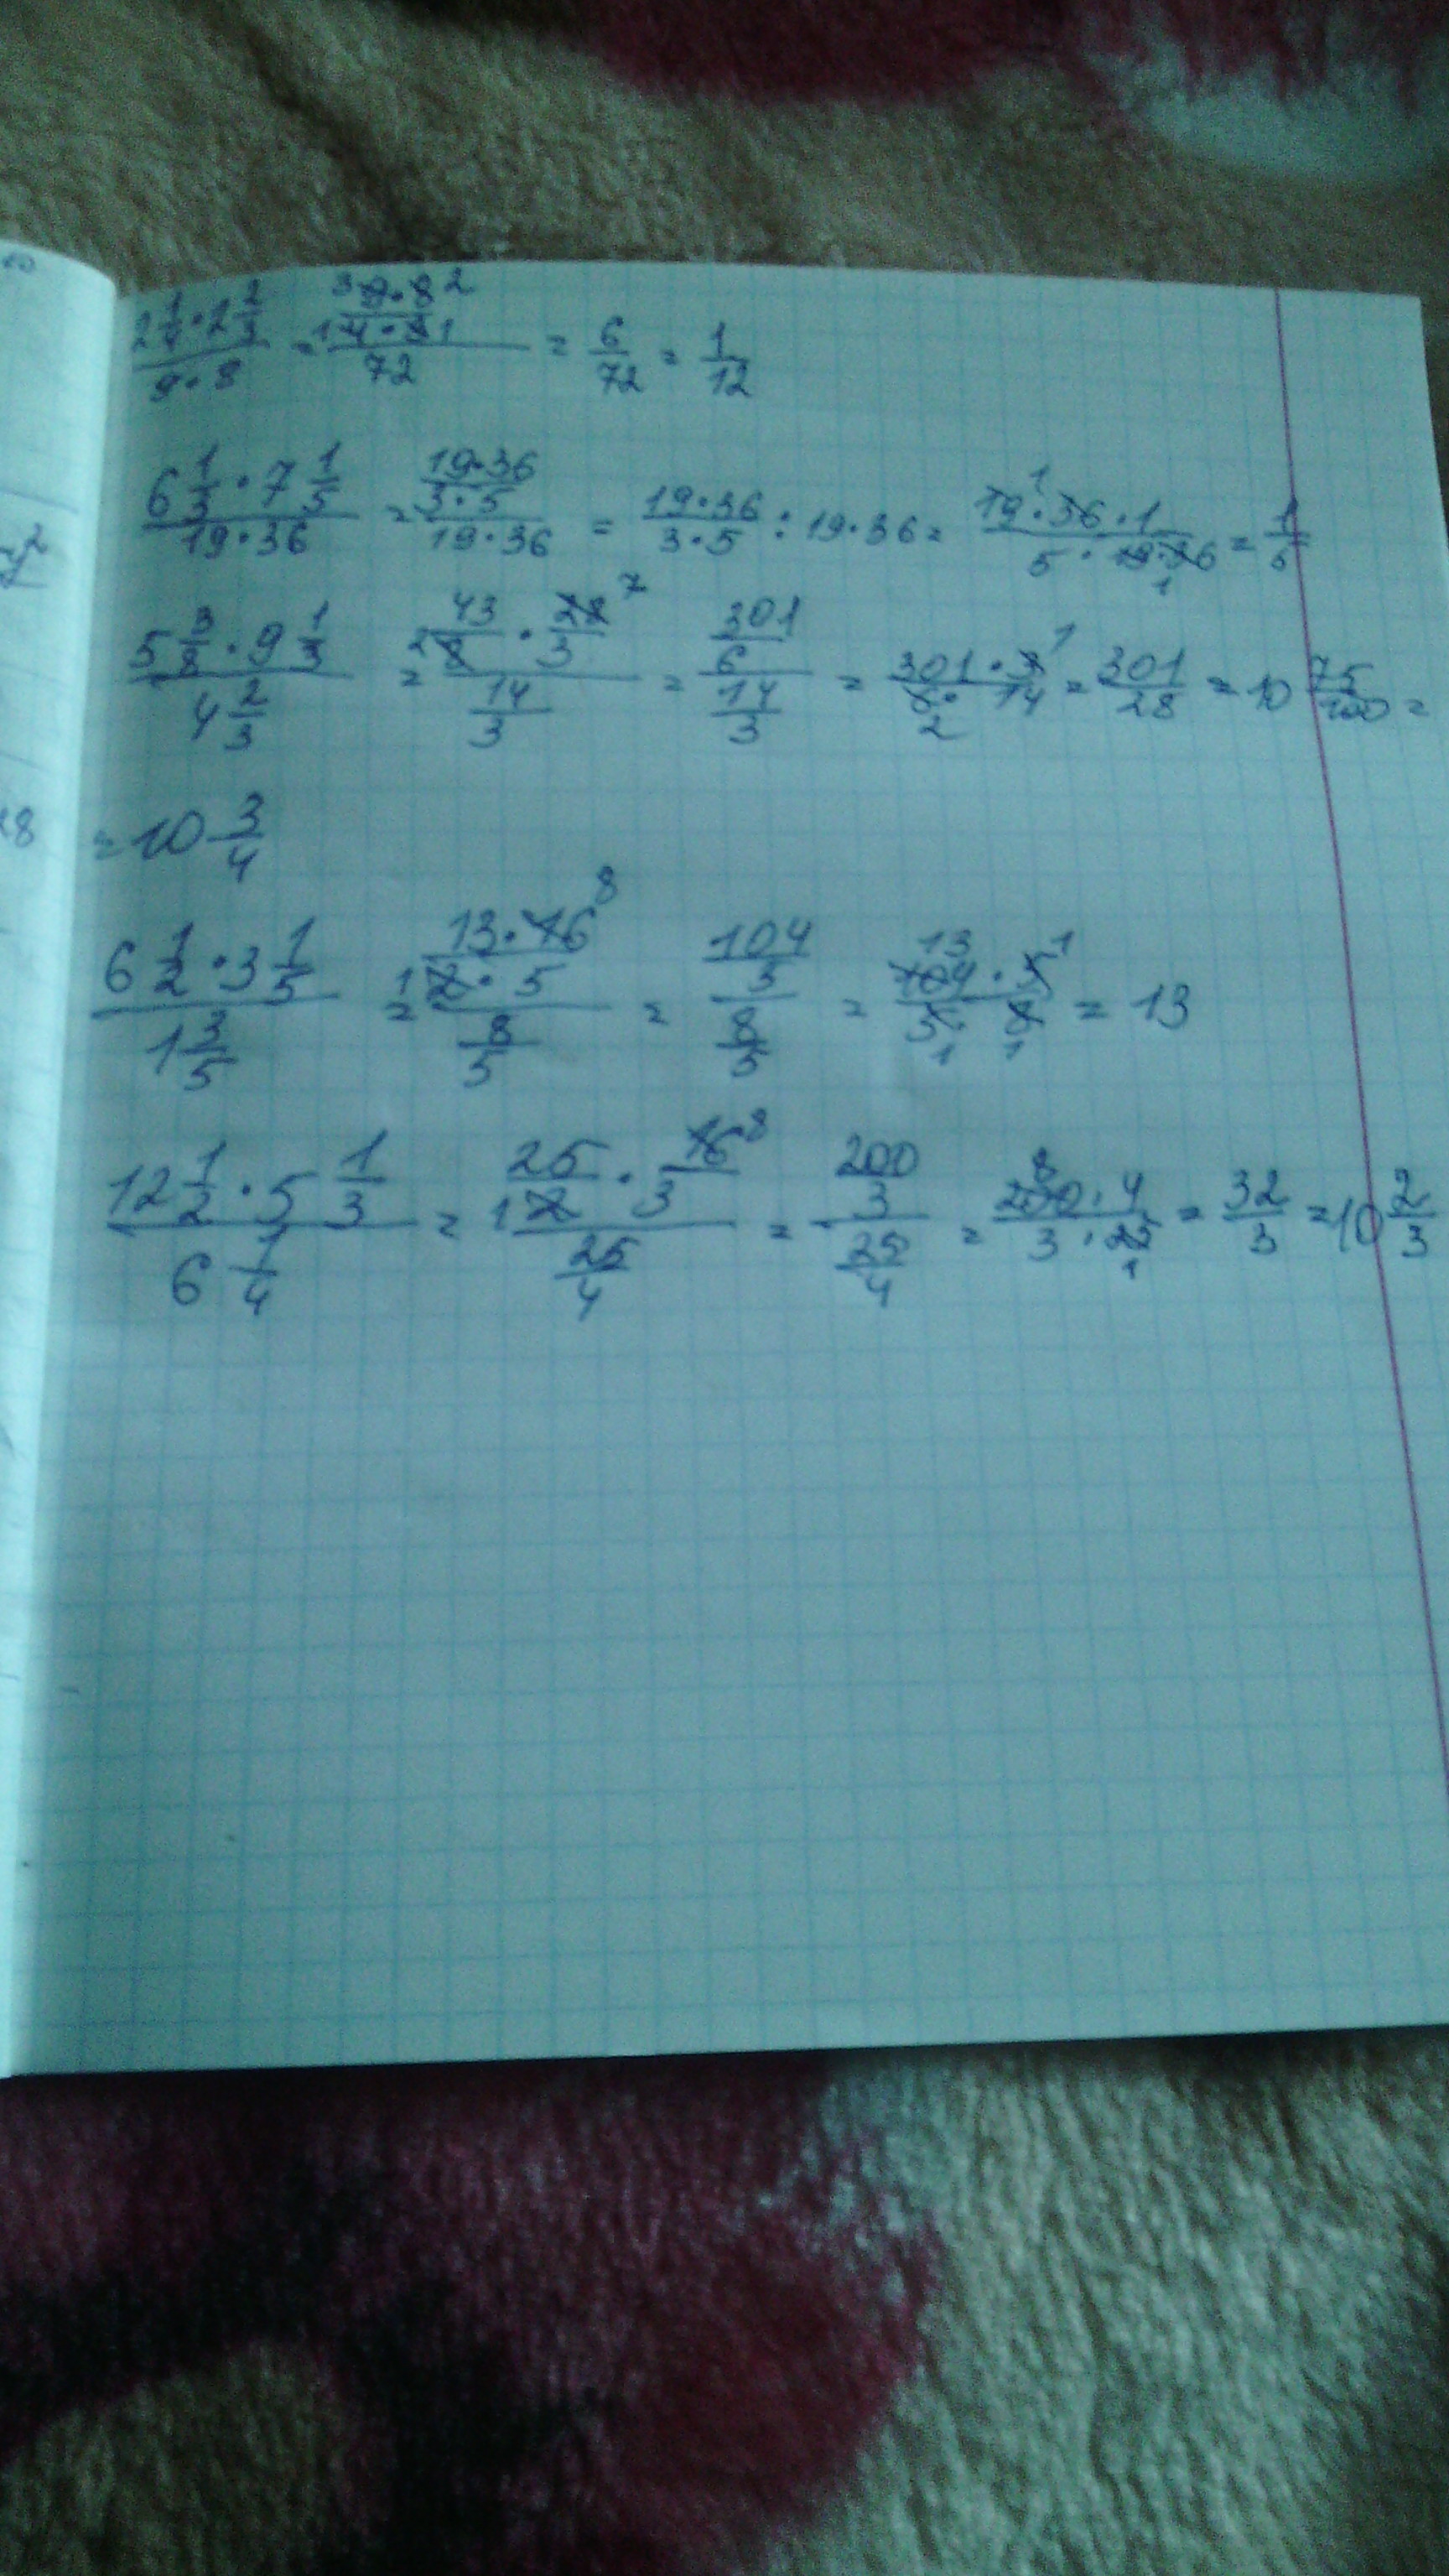 (2 1/4 · 2 2/3)/(9 · 8) = ((9 · 8)/(4 · 3))/72 = 6/72 = 1/12
(6 1/3 · 7 1/5)/(19 · 36) = ((19 · 36)/(3 · 5))/(19 · 36) = (19 · 36)/(3 · 5) : 19 · 36 = (19 · 36 · 1)/(5 · 19 · 36) = 1/5
(5 3/8 · 9 1/3)/(4 2/3) = (43/8 · 28/3)/(14/3) = (301/6)/(14/3) = (301 · 3)/(6 · 14) = 301/28 = 10 75/100 =
= 10 3/4
(6 1/2 · 3 1/5)/(1 3/5) = ((13 · 16)/(2 · 5))/(8/5) = (104/5)/(8/5) = (104 · 5)/(5 · 8) = 13
(12 1/2 · 5 1/3)/(6 1/4) = (25/2 · 16/3)/(25/4) = (200/3)/(25/4) = (200 · 4)/(3 · 25) = 32/3 = 10 2/3